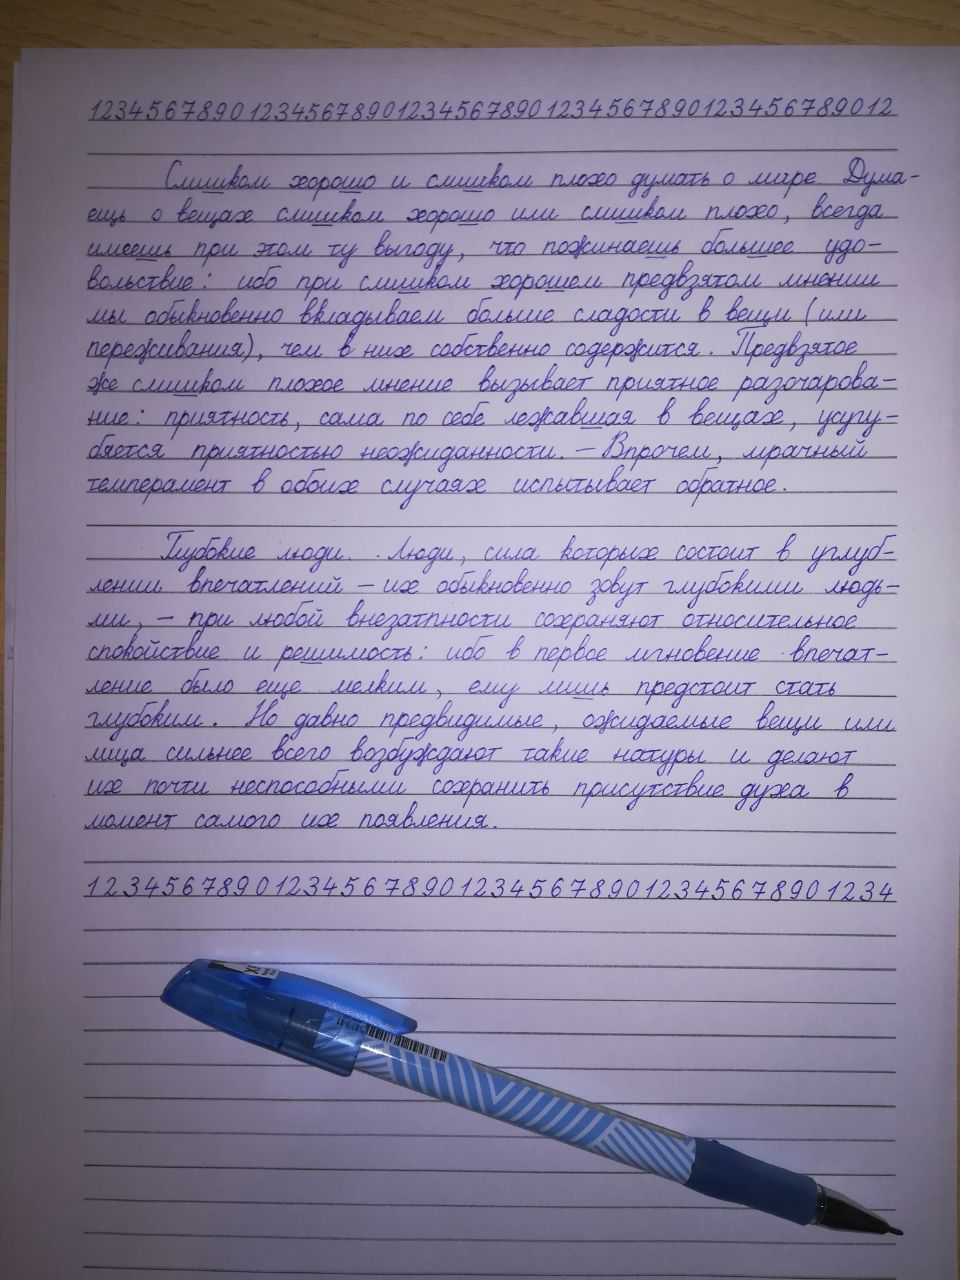 1234567890123456789012345678901234567890123456789012
Слишком хорошо и слишком плохо думать о мире. Дума-
ешь о вещах слишком хорошо или слишком плохо, всегда
имеешь при этом ту выгоду, что пожинаешь большее удо-
вольствие: ибо при слишком хорошем предвзятом мнении
мы обыкновенно вкладываем больше сладости в вещи (или
переживания), чем в них собственно содержится. Предвзятое
же слишком плохое мнение вызывает приятное разочарова-
ние: приятность, сама по себе лежавшая в вещах, усугу-
бяется приятностью неожиданности. – Впрочем, мрачный
темперамент в обоих случаях испытывает обратное.
Глубокие люди. Люди, сила которых состоит в углуб-
лении впечатлений – их обыкновенно зовут глубокими людь-
ми, – при любой внезатпности сохраняют относительное
спокойствие и решимость: ибо в первое мгновение впечат-
ление было еще мелким, ему лишь предстоит стать
глубоким. Но давно предвидимые, ожидаемые вещи или
лица сильнее всего возбуждают такие натуры и делают
их почти неспособными сохранить присутствие духа в
момент самого их появления.
123456789012345678901234567890123456789012345678901234